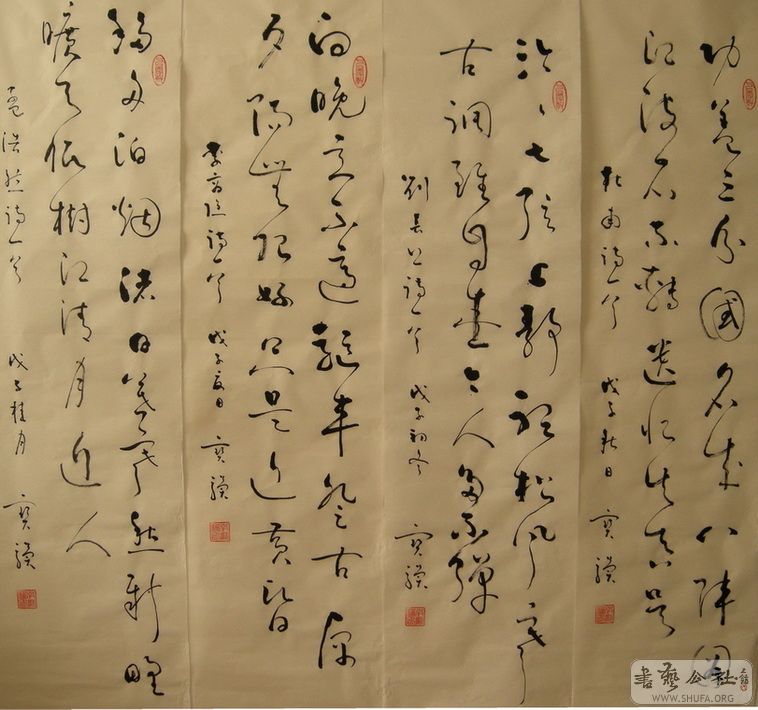 功蓋三分國名成八陣圖
江流石不轉遺恨失吞吳
杜甫詩一首 戊子秋日 寶
泠泠七弦上靜聽松風寒
古調雖自愛今人多不彈
劉長卿詩一首 戊子初冬 寶
向晚意不適驅車登古原
夕陽無限好只是近黃昏
李商隱詩一首 戊子夏日 寶
移舟泊烟渚日暮客愁新野
曠天低樹江清月近人
孟浩然詩一首 戊子桂月 寶
書藝公社
WWW.SHUFA.ORG